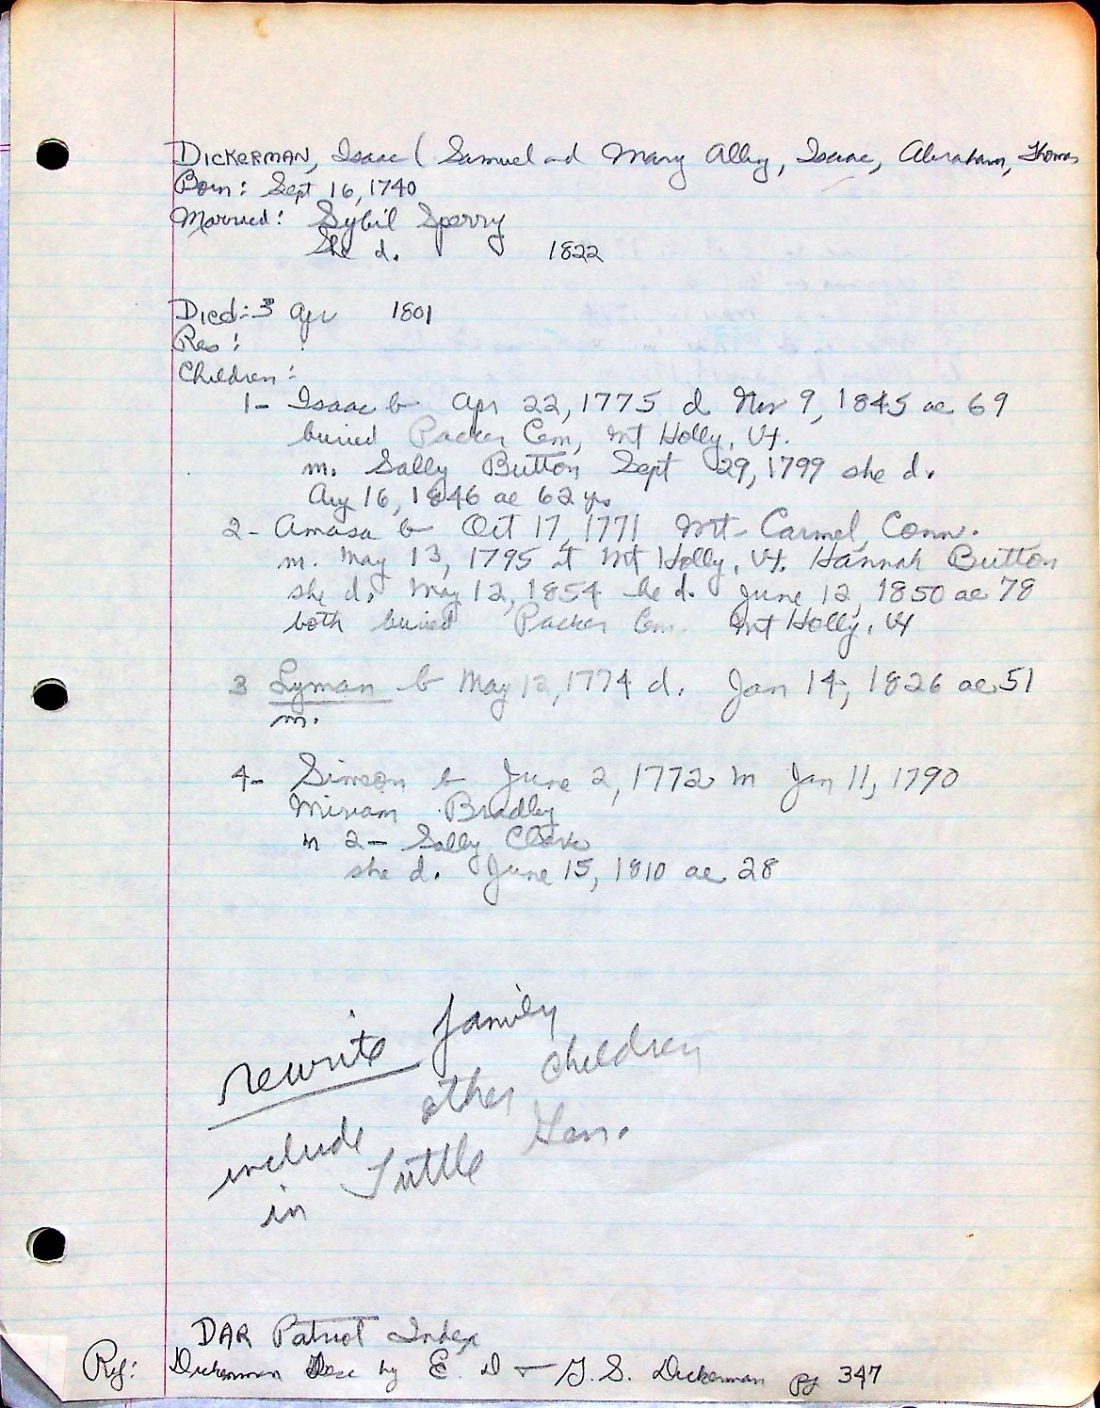 DICKERMAN, Isaac ( Samuel and Mary Alling, Isaac, Abraham, Thomas
Born: Sept 16, 1740
Married: Sybil Sperry
She d. 1822
Died: 3 Apr 1801
Res:
Children:
1- Isaac b Apr 22, 1775 d Nov 9, 1845 ae 69
buried Packer Cem, Mt Holly, Vt.
m. Sally Button Sept 29, 1799 she d.
Aug 16, 1846 ae 62 yrs
2- Amasa b Oct 17, 1771 Mt- Carmel, Conn.
m. May 13, 1795 at Mt Holly, Vt. Hannah Button
she d. May 12, 1854 he d. June 12, 1850 ae 78
both buried Packer Cem. Mt Holly, Vt
3 Lyman b May 12, 1774 d. Jan 14, 1826 ae 51
m.
4- Simeon b June 2, 1772 m Jan 11, 1790
Miriam Bradley
m 2- Sally Clark
she d. June 15, 1810 ae 28
rewrite family
include other children
in Tuttle Gen.
DAR Patriot Index
Ref: Dickerman Desc by E. D + G. S. Dickerman pg 347